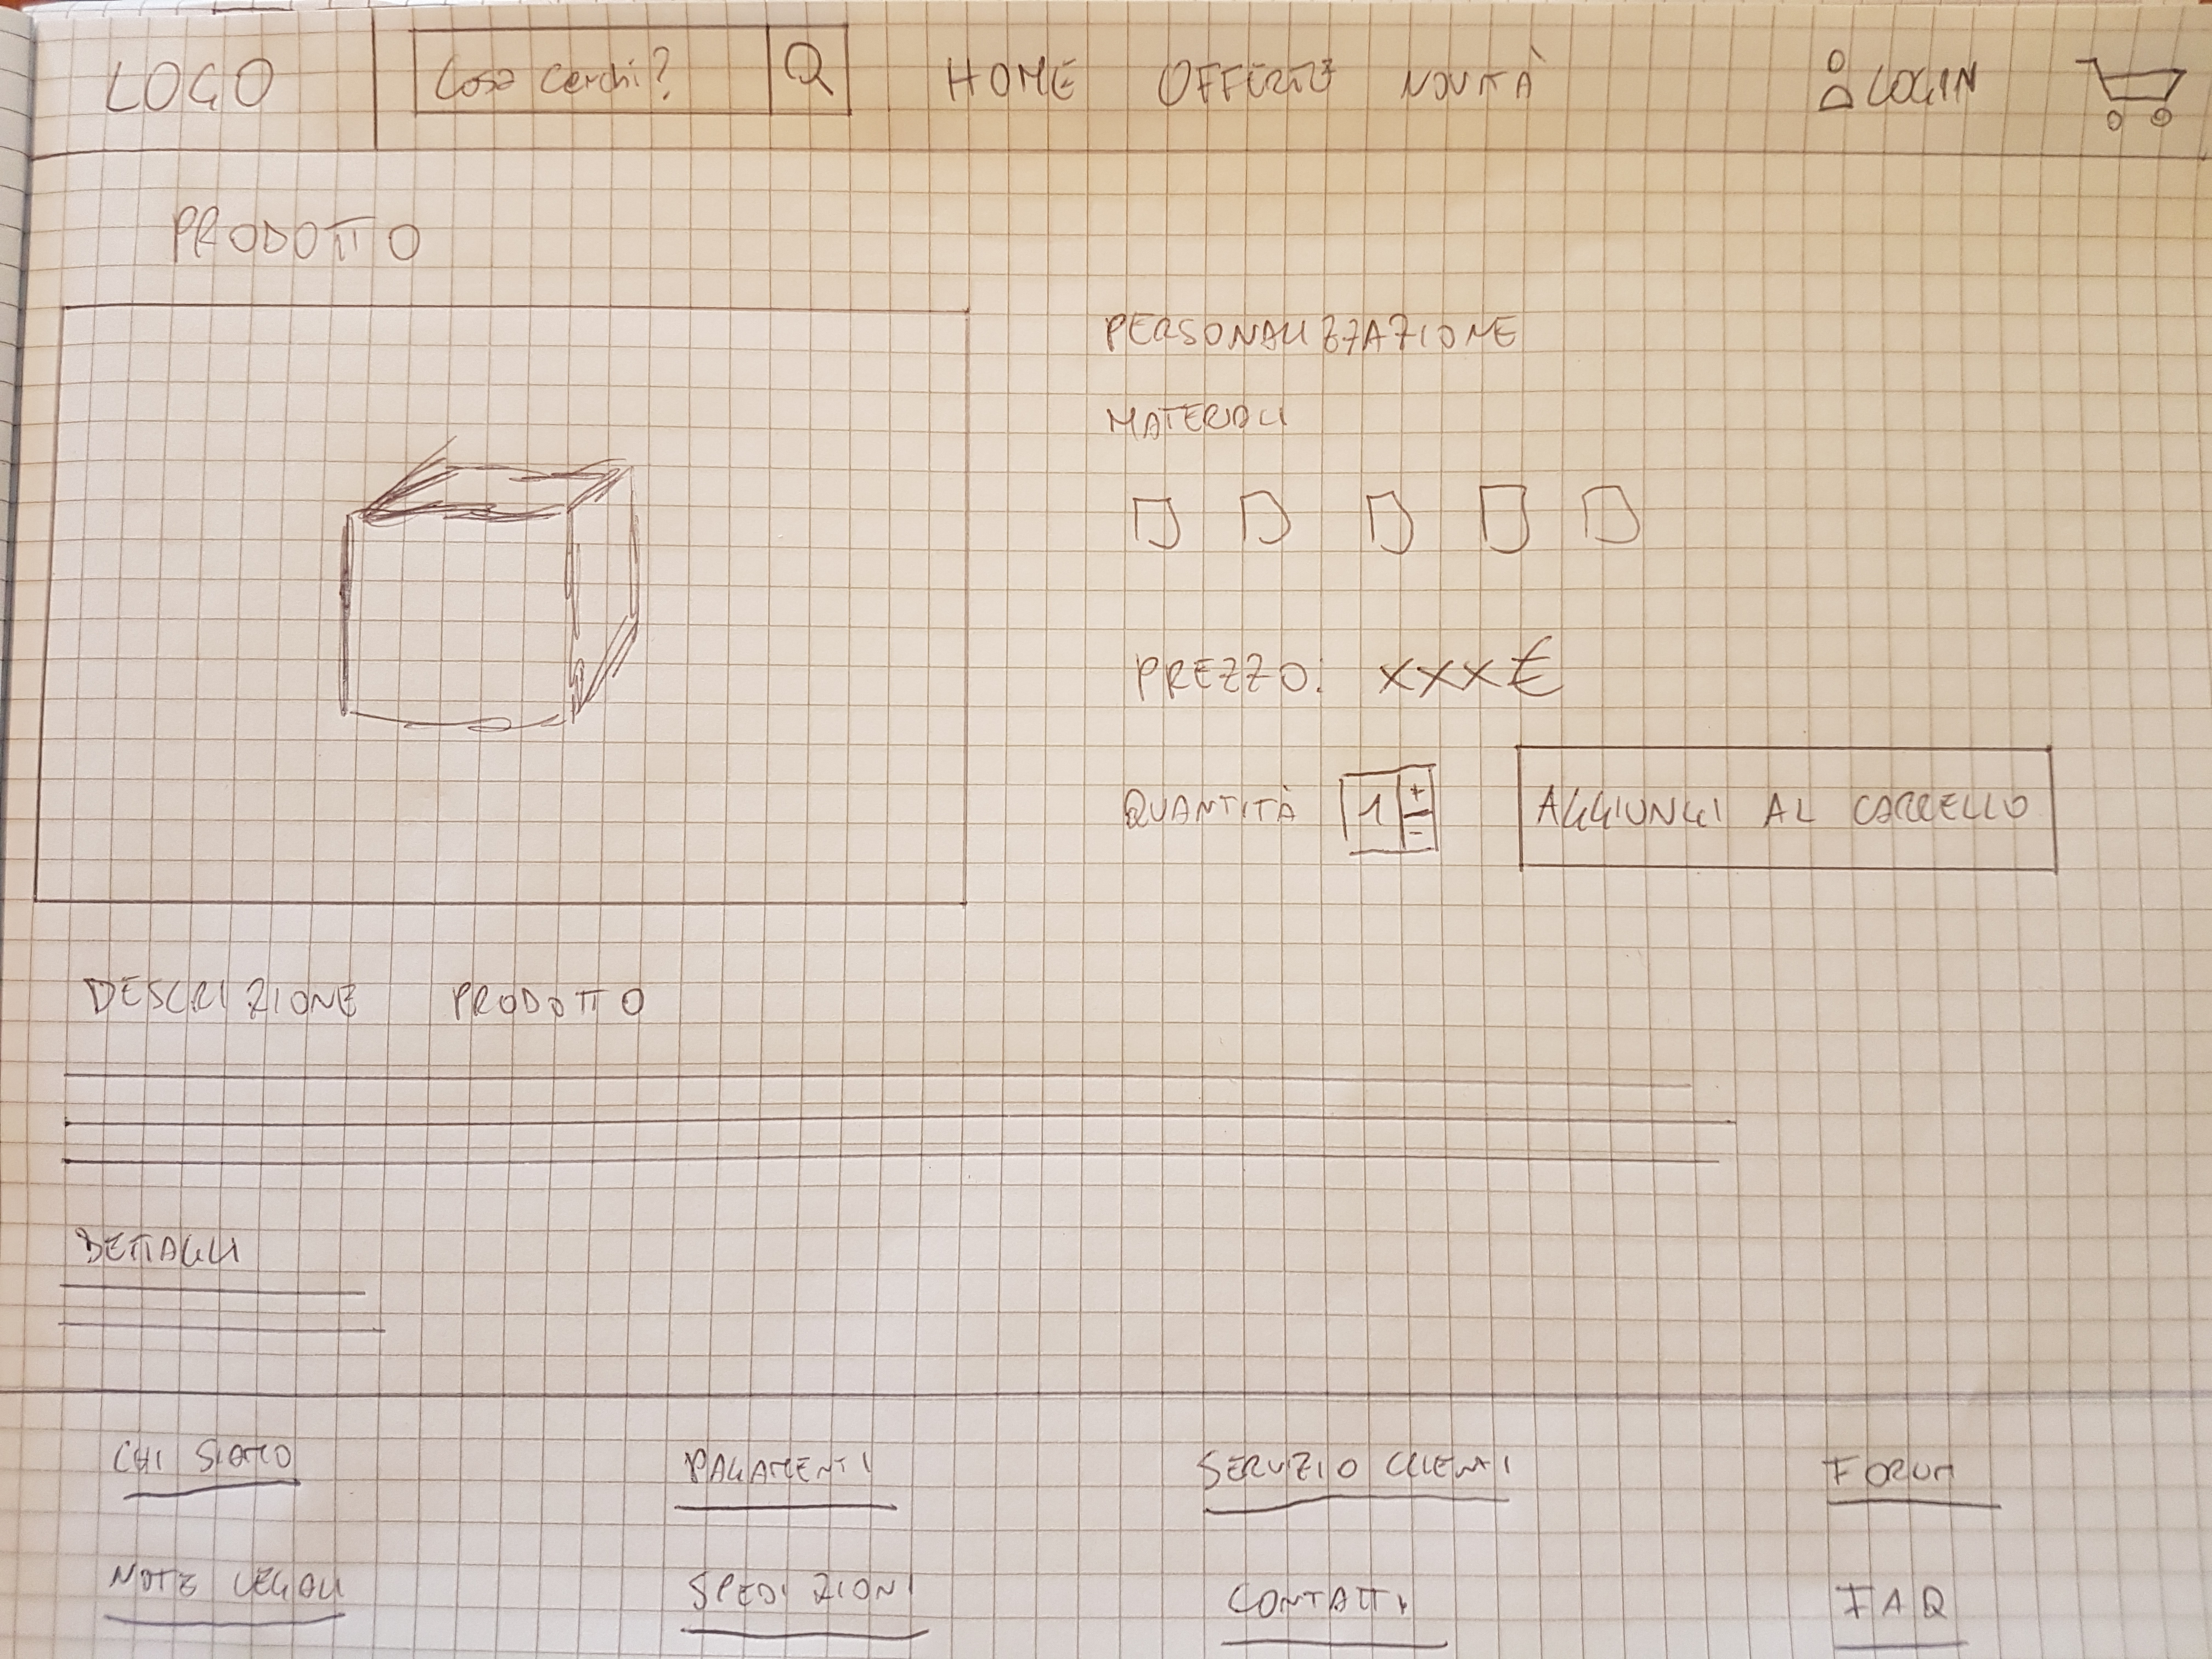 LOGO Cosa cerchi? HOME OFFERTE NOVITÀ LOGIN
PRODOTTO
PERSONALIZZAZIONE
MATERIALI
PREZZO: XXX€
QUANTITÀ 1 + - AGGIUNGI AL CARRELLO
DESCRIZIONE PRODOTTO
DETTAGLI
CHI SIAMO PAGAMENTI SERVIZIO CLIENTI FORUM
NOTE LEGALI SPEDIZIONI CONTATTI FAQ